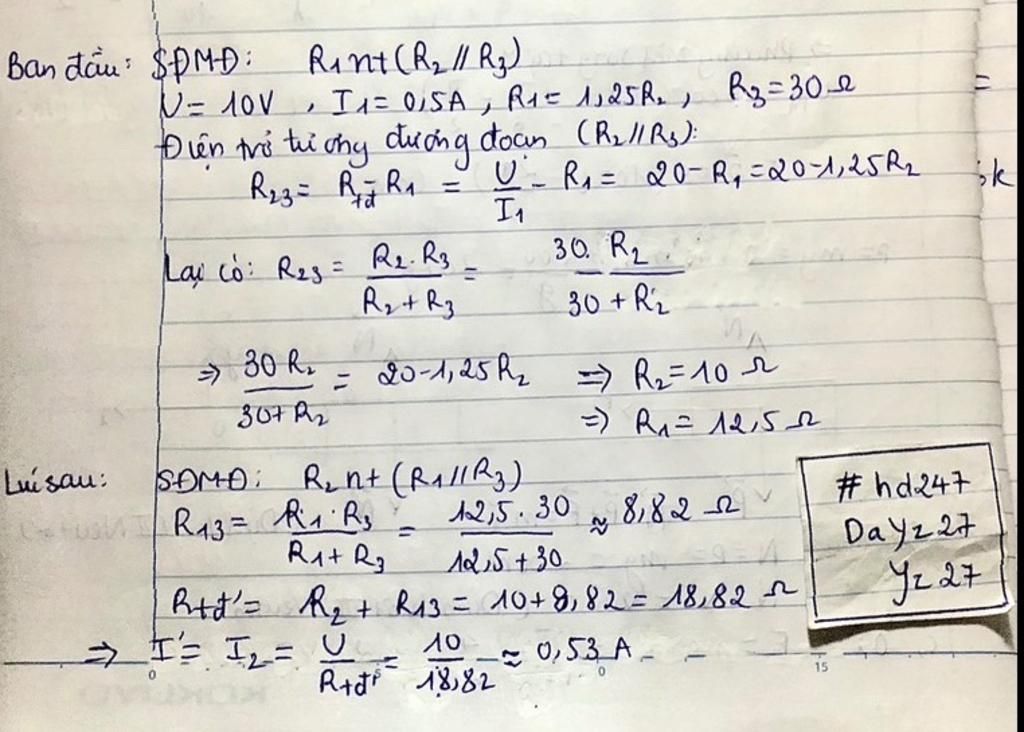 Ban đầu: SĐMĐ: R₁ nt (R₂ // R₃)
U = 10V , I₁ = 0,5A , R₁ = 1,25R₂ , R₃ = 30 Ω
=
Điện trở tương đương đoạn (R₂ // R₃):
R₂₃ = Rtđ - R₁ = U/I₁ - R₁ = 20 - R₁ = 20 - 1,25R₂
Lại có: R₂₃ = R₂.R₃/R₂ + R₃ = 30.R₂/30 + R₂
⇒ 30R₂/30+R₂ = 20 - 1,25R₂ ⇒ R₂ = 10 Ω
⇒ R₁ = 12,5 Ω
Lúc sau: SĐMĐ: R₂ nt (R₁ // R₃)
R₁₃ = R₁.R₃/R₁ + R₃ = 12,5.30/12,5 + 30 ≈ 8,82 Ω
Rtđ' = R₂ + R₁₃ = 10 + 8,82 = 18,82 Ω
⇒ I' = I₂ = U/Rtđ' = 10/18,82 ≈ 0,53 A
# hd247
DaYz27
Yz27
0 0 15